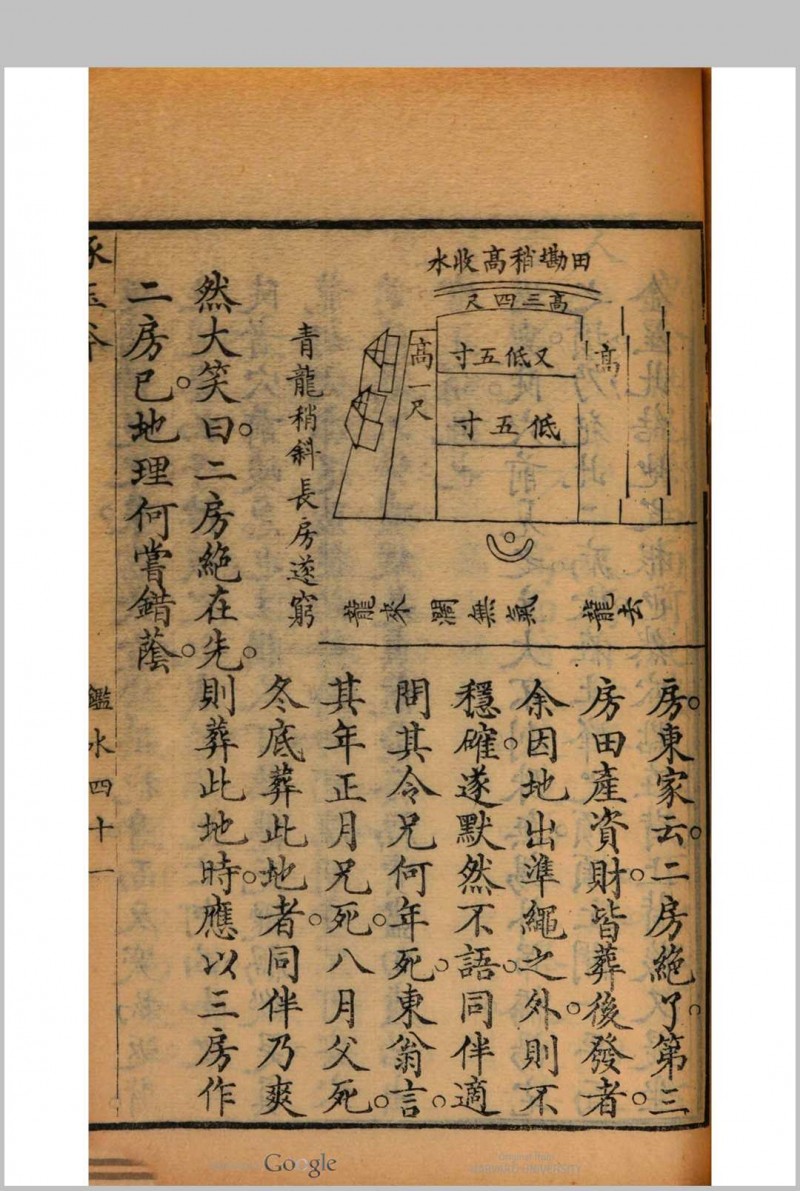 田墈稍高收水
高三四尺
高
又低五寸
低五寸
高一尺
去龍
氣無濶
來龍
青龍稍斜長房遂窮
房東家云二房絶了第三
房田產資財皆葬後發者
余因地出準繩之外則不
穩確遂默然不語同伴適
問其令兄何年死東翁言
其年正月兄死八月父死
冬底葬此地者同伴乃爽
然大笑曰二房絶在先則葬此地時應以三房作
二房已地理何嘗錯蔭
鑑水四十一
Google
Original from
HARVARD UNIVERSITY